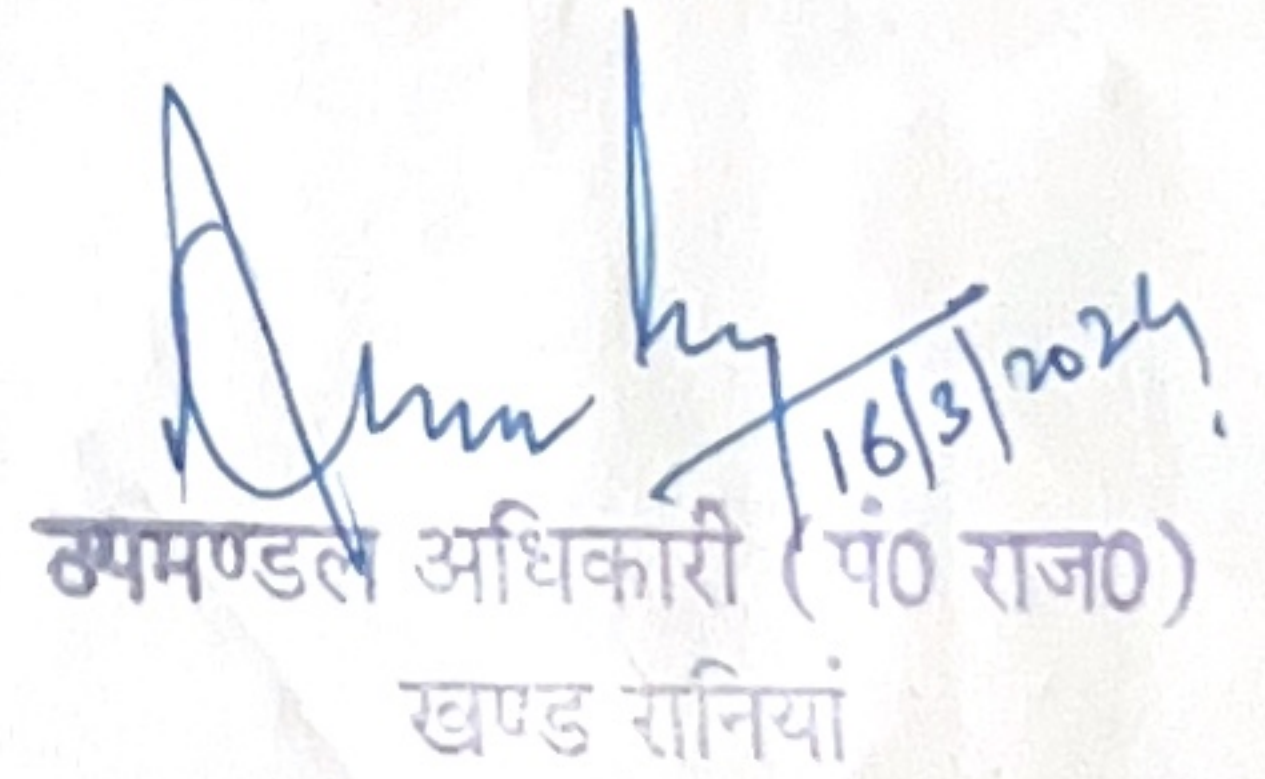 16/3/2024
उपमण्डल अधिकारी (पं0 राज0)
खण्ड रानियां